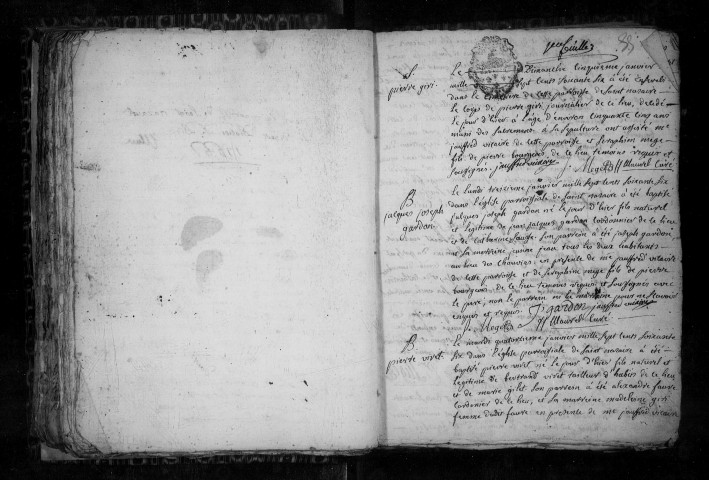 S
pierre giri.
Le Dimanche cinquieme janvier
mille sept cents soixante six a été enseveli
dans le cimetiere de cette parroisse de saint nazaire
le corps de pierre giri journalier de ce lieu, decedé
le jour d'hier a l'age d'environ cinquante cinq ans
muni des sacremens, a sa sepulture ont assisté me
jauffred vicaire de cette parroisse et seraphim mege
fils de pierre bourgeois de ce lieu temoins requis et
soussignés. jauffred vicaire
Mege Maurel Curé
B
jacques joseph
gardon
Le lundi treizieme janvier mille sept cents soixante six
dans l'église parroissiale de saint nazaire a été baptisé
jacques joseph gardon né le jour d'hier fils naturel
et legitime de jean jacques gardon cordonnier de ce lieu
et de catherine son parrein a été joseph gardon
et sa marreine jeanne jean tous les deux habitants
au lieu des en presence de me jauffred vicaire
de cette parroisse et de seraphim mege fils de pierre
bourgeois de ce lieu temoins requis et soussignés avec
le pere, non le parrein ni la marreine pour ne sçavoir
enquis et requis. J gardon jauffred vicaire
Mege Maurel Curé
B
pierre viret
Le mardi quatorzieme janvier mille sept cents soixante
six dans l'église parroissiale de saint nazaire a été
baptisé pierre viret né le jour d'hier fils naturel et
legitime de bertrand viret tailleur d'habits de ce lieu
et de marie gilet son parrein a été alexandre faure
cordonnier de ce lieu, et sa marreine madeleine giri
femme dudit faure en presence de me jauffred vicaire